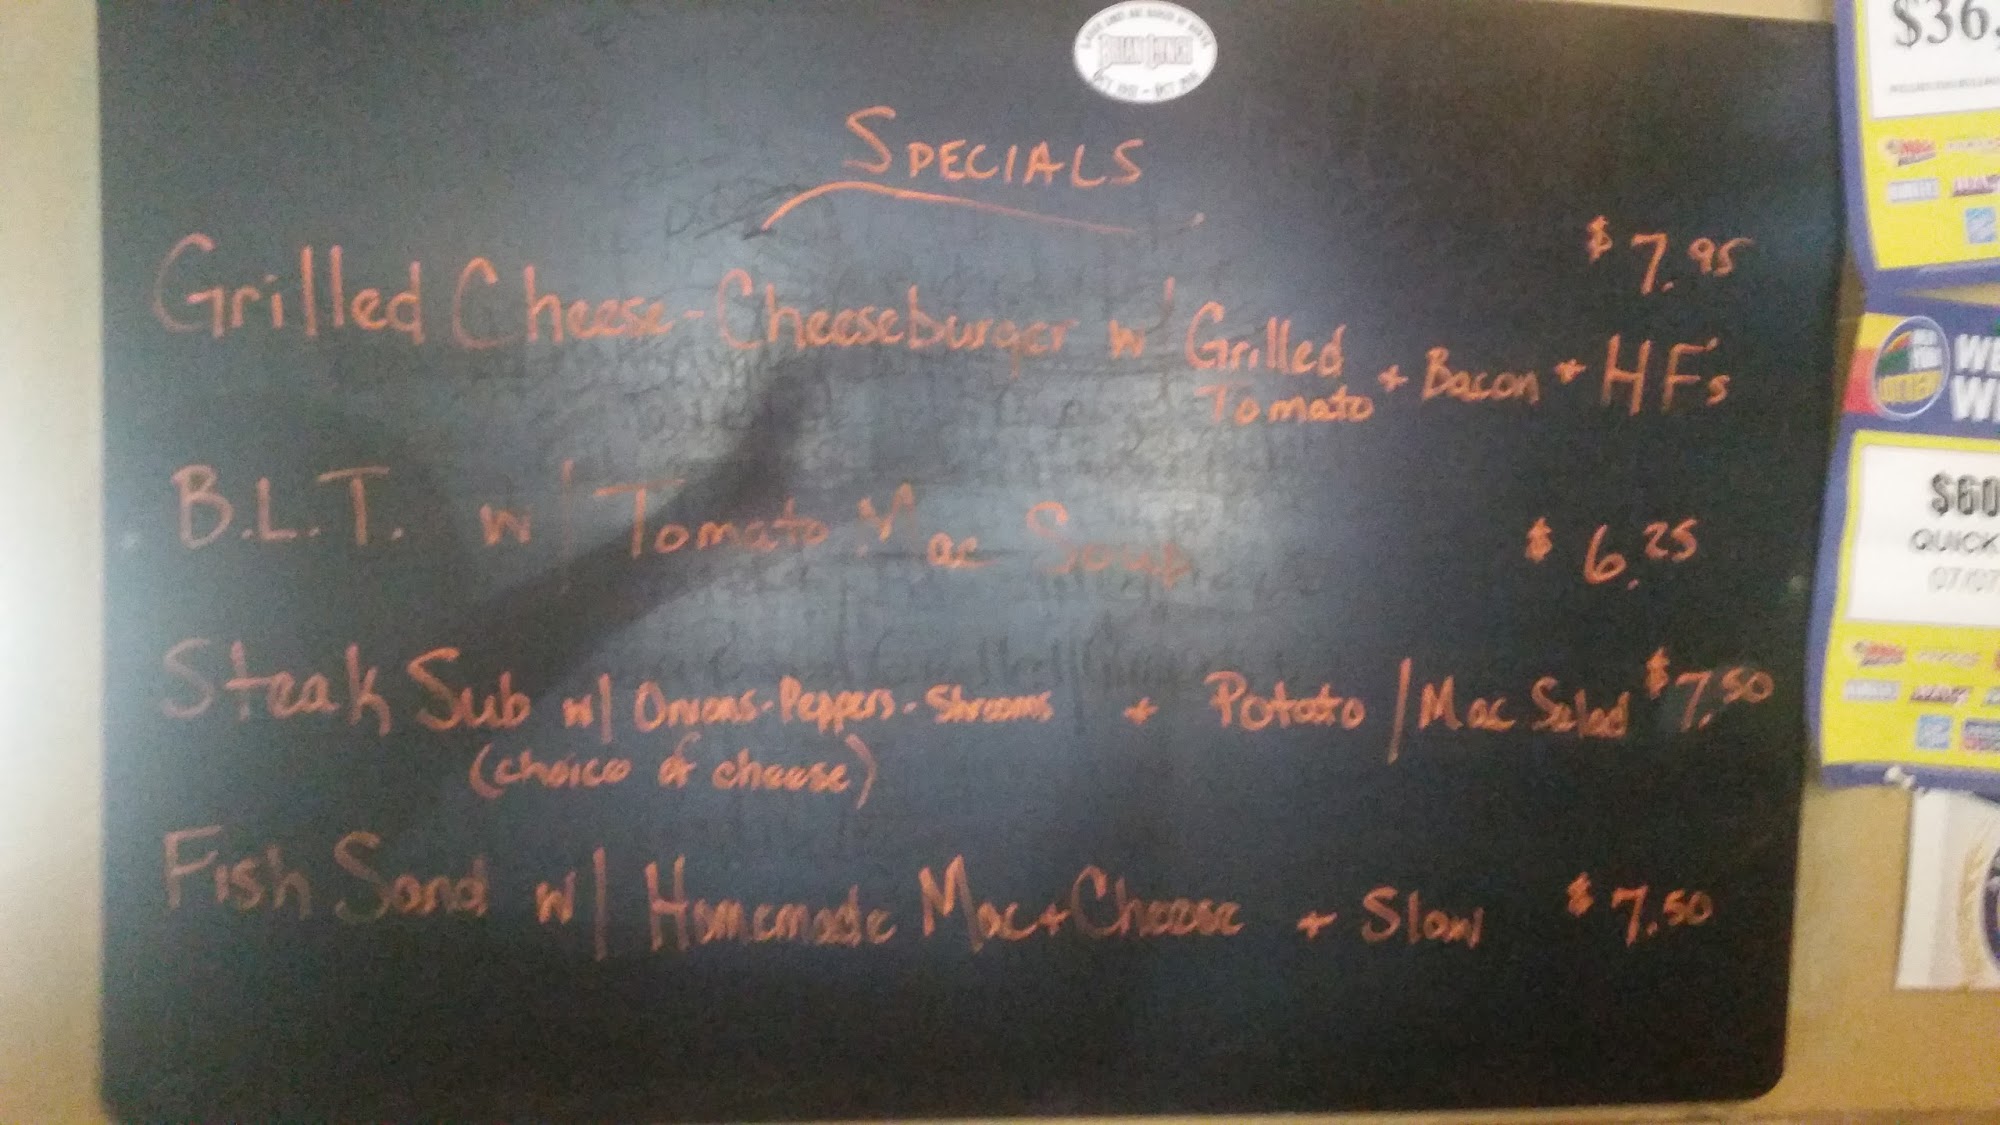 BRIAN LYNCH
SPECIALS
$7.95
Grilled Cheese-Cheeseburger w/ Grilled Tomato + Bacon + HF's
B.L.T. w/ Tomato Mac Soup $6.25
Steak Sub w/ Onions-Peppers-Shrooms + Potato/Mac Salad $7.50
(choice of cheese)
Fish Sand w/ Homemade Mac+Cheese + Slaw $7.50
$36,
WE
WI
$60
QUICK
07/07